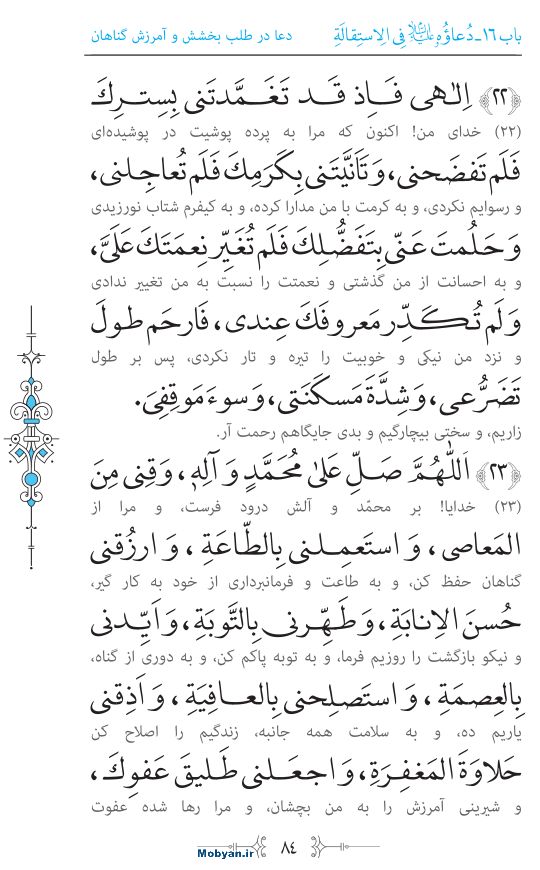 باب ۱۶ـ دُعاؤُهُ فِی الاِستِقالَةِ
دعا در طلب بخشش و آمرزش گناهان
﴿۲۲﴾ اِلٰهی فَاِذ قَد تَغَمَّدتَنی بِسِترِكَ
(۲۲) خدای من! اکنون که مرا به پرده پوشیت در پوشیده‌ای
فَلَم تَفضَحنی، وَ تَاَنَّیتَنی بِکَرَمِكَ فَلَم تُعاجِلنی،
و رسوایم نکردی، و به کرمت با من مدارا کرده، و به کیفرم شتاب نورزیدی
وَ حَلُمتَ عَنّی بِتَفَضُّلِكَ فَلَم تُغَیِّر نِعمَتَكَ عَلَیَّ،
و به احسانت از من گذشتی و نعمتت را نسبت به من تغییر ندادی
وَ لَم تُکَدِّر مَعروفَكَ عِندی، فَارحَم طولَ
و نزد من نیکی و خوبیت را تیره و تار نکردی، پس بر طول
تَضَرُّعی، وَ شِدَّةَ مَسکَنَتی، وَ سوءَ مَوقِفیَ.
زاریم، و سختی بیچارگیم و بدی جایگاهم رحمت آر.
﴿۲۳﴾ اَللّٰهُمَّ صَلِّ عَلیٰ مُحَمَّدٍ وَ آلِهٖ، وَقِنی مِنَ
(۲۳) خدایا! بر محمّد و آلش درود فرست، و مرا از
المَعاصی، وَ استَعمِلنی بِالطّاعَةِ، وَ ارزُقنی
گناهان حفظ کن، و به طاعت و فرمانبرداری از خود به کار گیر،
حُسنَ الاِنابَةِ، وَ طَهِّرنی بِالتَّوبَةِ، وَ اَیِّدنی
و نیکو بازگشت را روزیم فرما، و به توبه پاکم کن، و به دوری از گناه،
بِالعِصمَةِ، وَ استَصلِحنی بِالعافِیَةِ، وَ اَذِقنی
یاریم ده، و به سلامت همه جانبه، زندگیم را اصلاح کن
حَلاوَةَ المَغفِرَةِ، وَ اجعَلنی طَلیقَ عَفوِكَ،
و شیرینی آمرزش را به من بچشان، و مرا رها شده عفوت
۸۴
Mobyan.ir